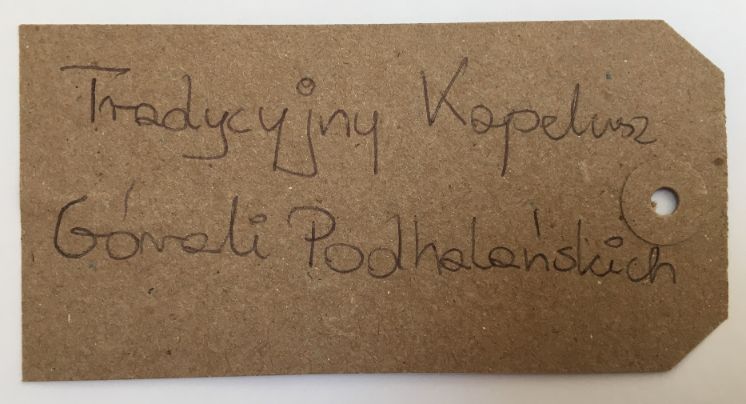 Tradycyjny Kapelusz
Górali Podhalańskich